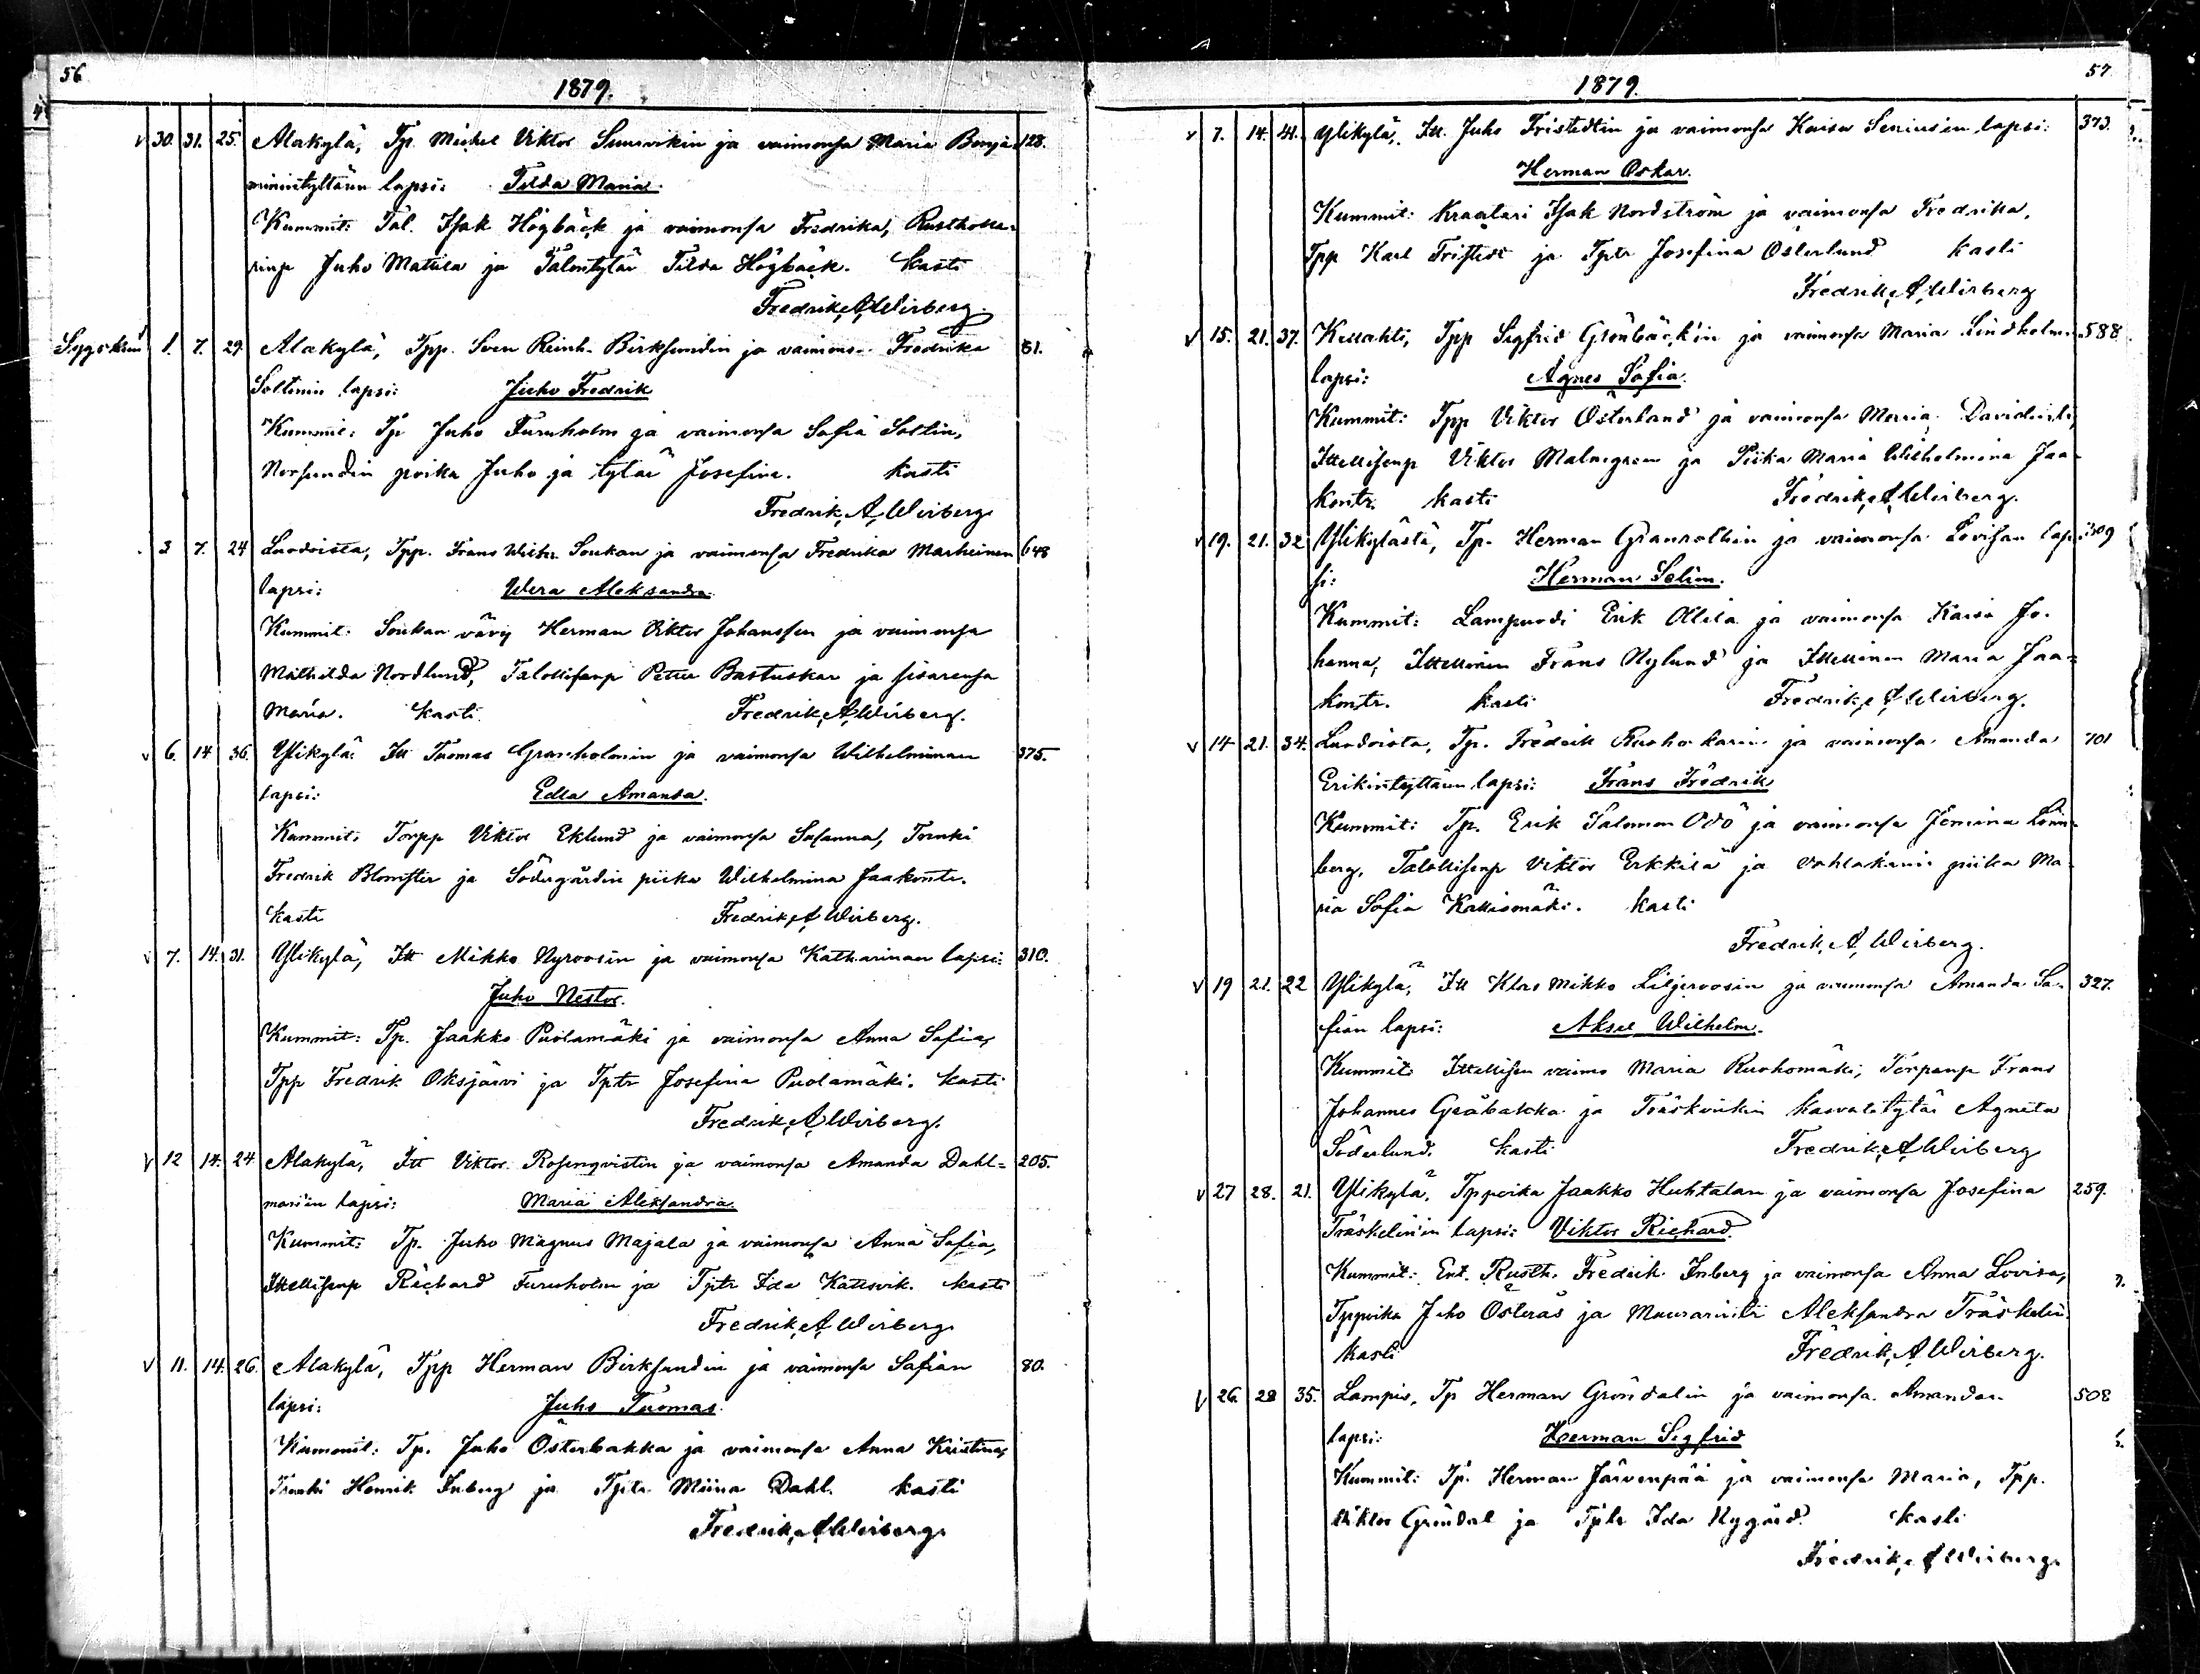 56
1879.
v 30. 31. 25. Alakylä, Tp. Michel Viktor Sunsvikin ja vaimonsa Maria Benja- 128.
miinintyttären lapsi: Tilda Maria.
Kummit: Tal. Isak Högback ja vaimonsa Fredrika, Rusthollarinp Juho Mattila ja Talontytär Tilda Högback. kasti
Fredrik A Wirberg.
Syyskuu 1. 7. 29. Alakylä, Tpp. Sven Reinh. Birksundin ja vaimons. Fredrika 81.
Soltinin lapsi: Juho Fredrik
Kummit: Tp Juho Furuholm ja vaimonsa Sofia Soltin,
Norsundin poika Juho ja tytär Josefine. kasti
Fredrik, A, Wirberg
3 7. 24 Luodoista, Tpp. Frans Wilh. Soukan ja vaimonsa Fredrika Marheinen 648
lapsi: Wera Aleksandra
Kummit: Soukan vävy Herman Viktor Johansson ja vaimonsa
Mathilda Nordlund, Talollisenp Petter Bastuskar ja sisarensa
Maria. kasti Fredrik, A, Wirberg.
v 6. 14 36. Ylikylä. Itt Tuomas Granholmin ja vaimonsa Wilhelminan 375.
lapsi: Edla Amanda.
Kummit: Torpp Viktor Eklund ja vaimonsa Susanna, Tornki
Fredrik Blomster ja Södergårdin piika Wilhelmina Jaakontr.
kasti Fredrik, A Wirberg.
v 7. 14. 31. Ylikylä, Itt Mikko Nyroosin ja vaimonsa Katharinan lapsi: 310.
Juho Nestor.
Kummit: Tp. Jaakko Puolamäki ja vaimonsa Anna Sofia,
Tpp Fredrik Oksjärvi ja Tptr Josefina Puolamäki. kasti
Fredrik, A, Wirberg.
v 12 14. 24 Alakylä, Itt Viktor Rosenqvistin ja vaimonsa Amanda Dahl= 205.
manin lapsi: Maria Aleksandra.
Kummit: Tp. Juho Magnus Majala ja vaimonsa Anna Sofia,
Itellisenp Richard Furuholm ja Tptr Ida Kattsvik. kasti
Fredrik, A Wirberg
v 11. 14. 26. Alakylä, Tpp Herman Birksundin ja vaimonsa Sofian 80.
lapsi: Juho Tuomas.
Kummit: Tp. Juho Österbakka ja vaimonsa Anna Kristina,
Henrik Inberg ja Tptr. Miina Dahl. kasti
Fredrik, A Wirberg.
57
1879.
v 7. 14. 41. Ylikylä, Itt. Juho Fristedtin ja vaimonsa Kaisa Seniusin lapsi: 373.
Herman Oskar.
Kummit: Kraatari Isak Nordström ja vaimonsa Fredrika,
Tpp Karl Fristedt ja Tptr Josefina Österlund kasti
Fredrik, A, Wirberg
v 15. 21. 37. Kellahti, Tpp Sigfrid Grönbäck'in ja vaimonsa Maria Lindholmin 588
lapsi: Agnes Sofia.
Kummit: Tpp Viktor Österlund ja vaimonsa Maria Davidintr,
Itellisenp Viktor Malmgren ja Piika Maria Wilhelmina Jaa-
kontr. kasti Fredrik, A Wirberg.
v 19. 21. 32 Ylikylästä, Tp. Herman Granrothin ja vaimonsa Lovisan lap- 309
si: Herman Selim.
Kummit: Lampuodi Erik Ollila ja vaimonsa Kaisa Jo-
hanna, Itellinen Frans Nylund ja Itellinen Maria Jaa-
kontr. kasti Fredrik, A Wirberg.
v 14 21. 34. Luodoista, Tp. Fredrik Ruohokarin ja vaimonsa Amanda 701
Erikintyttären lapsi: Frans Fredrik
Kummit: Tp. Erik Salomon Odö ja vaimonsa Jemina Lönn-
berg, Talollisenp Viktor Erkkilä ja piika Ma-
ria Sofia Kalliomäki. kasti
Fredrik, A, Wirberg.
v 19 21. 22 Ylikylä, Itt Klas Mikko Liljeroosin ja vaimonsa Amanda So- 327.
fian lapsi: Aksel Wilhelm.
Kummit: Itellisen vaimo Maria Ruohomäki, Torparip Frans
Johannes Gråbakka ja Träskvikin kasvatitytär Agneta
Söderlund. kasti Fredrik, A Wirberg
v 27 28. 21. Ylikylä. Tppoika Jaakko Huhtalan ja vaimonsa Josefina 259.
Träskelin'in lapsi: Viktor Richard.
Kummit: Ent. Rusth. Fredrik Inberg ja vaimonsa Anna Lovisa,
Tppoika Juho Österås ja Muurarintr Aleksandra Träskelin
kasti Fredrik, A Wirberg.
v 26. 28 35. Lampis, Tp Herman Gröndalin ja vaimonsa Amandan 508
lapsi: Herman Sigfrid
Kummit: Tp. Herman Järvenpää ja vaimonsa Maria, Tpp.
Viktor Gröndal ja Tptr Ida Nygård. kasti
Fredrik, A Wirberg.